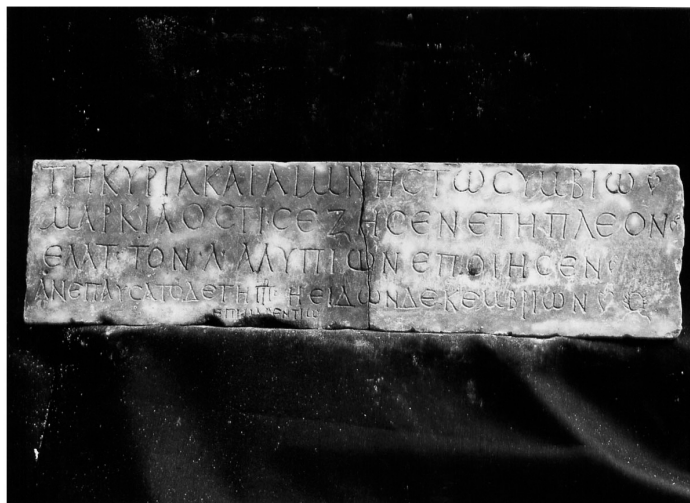 ΤΗΚΥΡΙΑΚΑΙΑΙΩΝΗCΤΩCΥΜΒΙΩ
ΜΑΡΚΙΑΟCΤΙCΕΖΗCΕΝΕΤΗΠΛΕΟΝ
ΕΛΑΤ·ΤΟΝ·Λ·ΑΛΥΠΙΩΝΕΠΟΙΗCΕΝ
ΑΝΕΠΑΥCΑΤΟΔΕΤΗΠΡ·ΗΕΙΔΩΝΔΕΚΕΜΒΡΙΩΝ